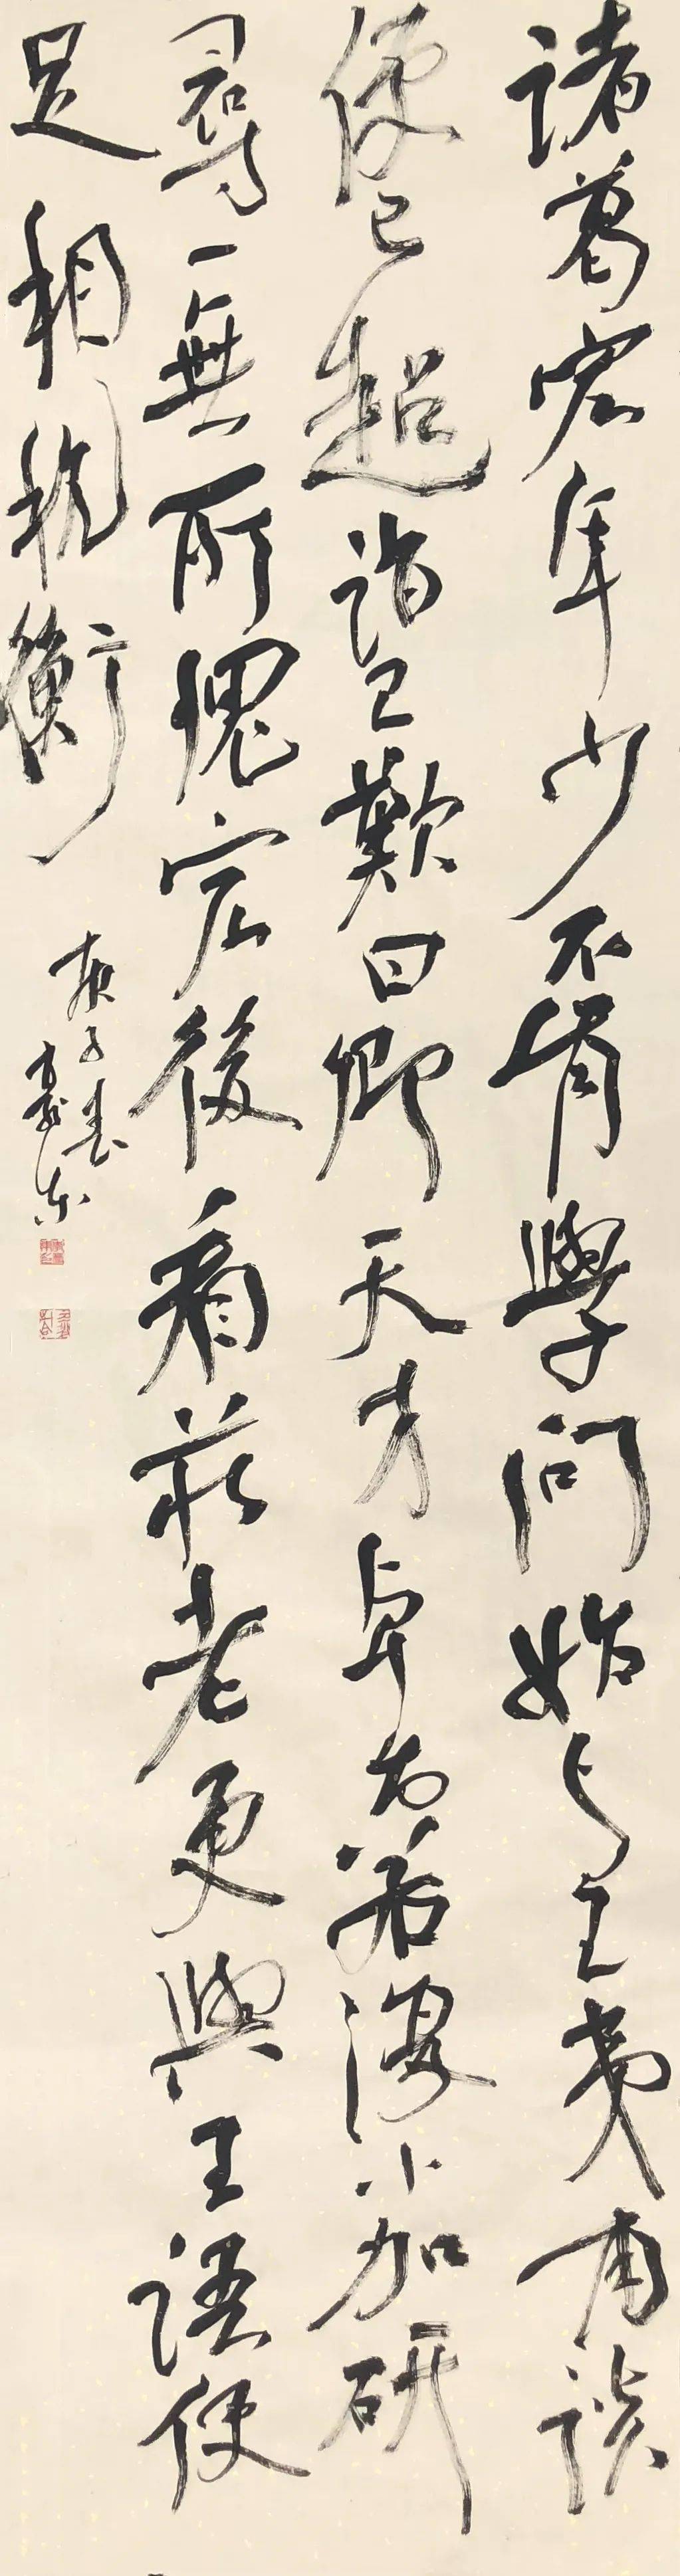 諸葛宏年少不肯學問始与王夷甫談
便已超詣王歎曰卿天才卓出若復小加研
尋一無所愧宏後看莊老更與王語便
足相抗衡
庚子春